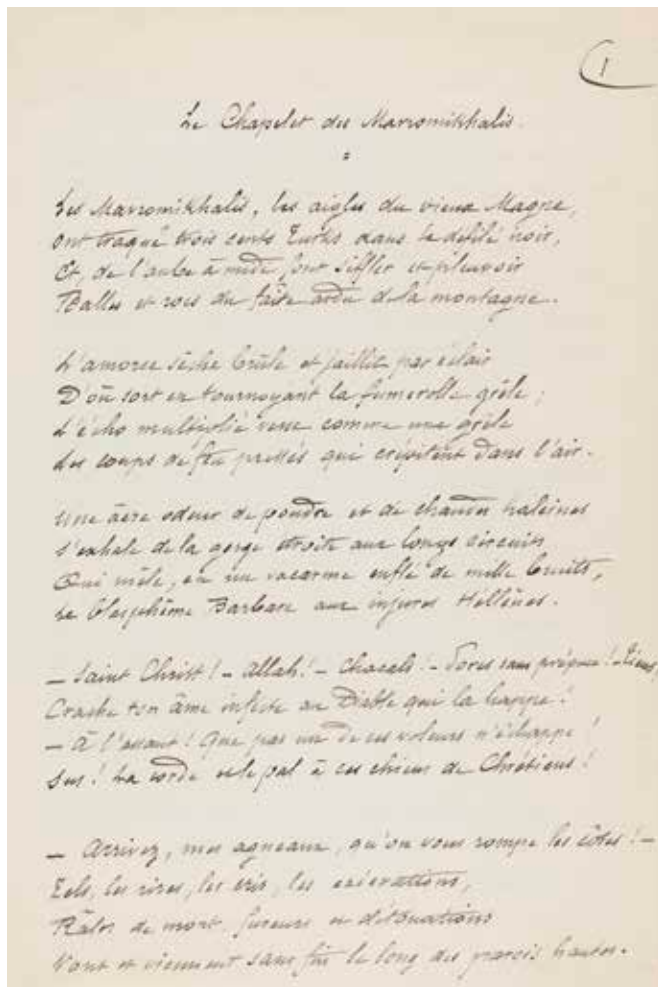 1
Le Chapelet des Mavromikhalis.
Les Mavromikhalis, les aigles du vieux Magne,
Ont traqué trois cents Turks dans le défilé noir,
Et de l'aube à midi font siffler et pleuvoir
Balles et rocs du faîte ardu de la montagne.
L'amorce sèche brûle et jaillit par éclair
D'où sort en tournoyant la fumerolle grêle ;
L'écho multiplié verse comme une grêle
Les coups de feu pressés qui crépitent dans l'air.
Une âcre odeur de poudre et de chaudes haleines
S'exhale de la gorge étroite aux longs circuits
Qui mêle, en un vacarme enflé de mille bruits,
Le blasphème Barbare aux injures Hellènes.
– Saint Christ ! – Allah ! – Chacals ! – Porcs sans prépuce ! – Tiens,
Crache ton âme infecte au Diable qui la happe !
– À l'assaut ! Que pas un de ces voleurs n'échappe !
Sus ! La corde et le pal à ces chiens de Chrétiens !
– Arrivez, mes agneaux, qu'on vous rompe les côtes ! –
Tels, les rires, les cris, les exécrations,
Râles de mort, fureurs et détonations
Vont et viennent sans fin le long des parois hautes.